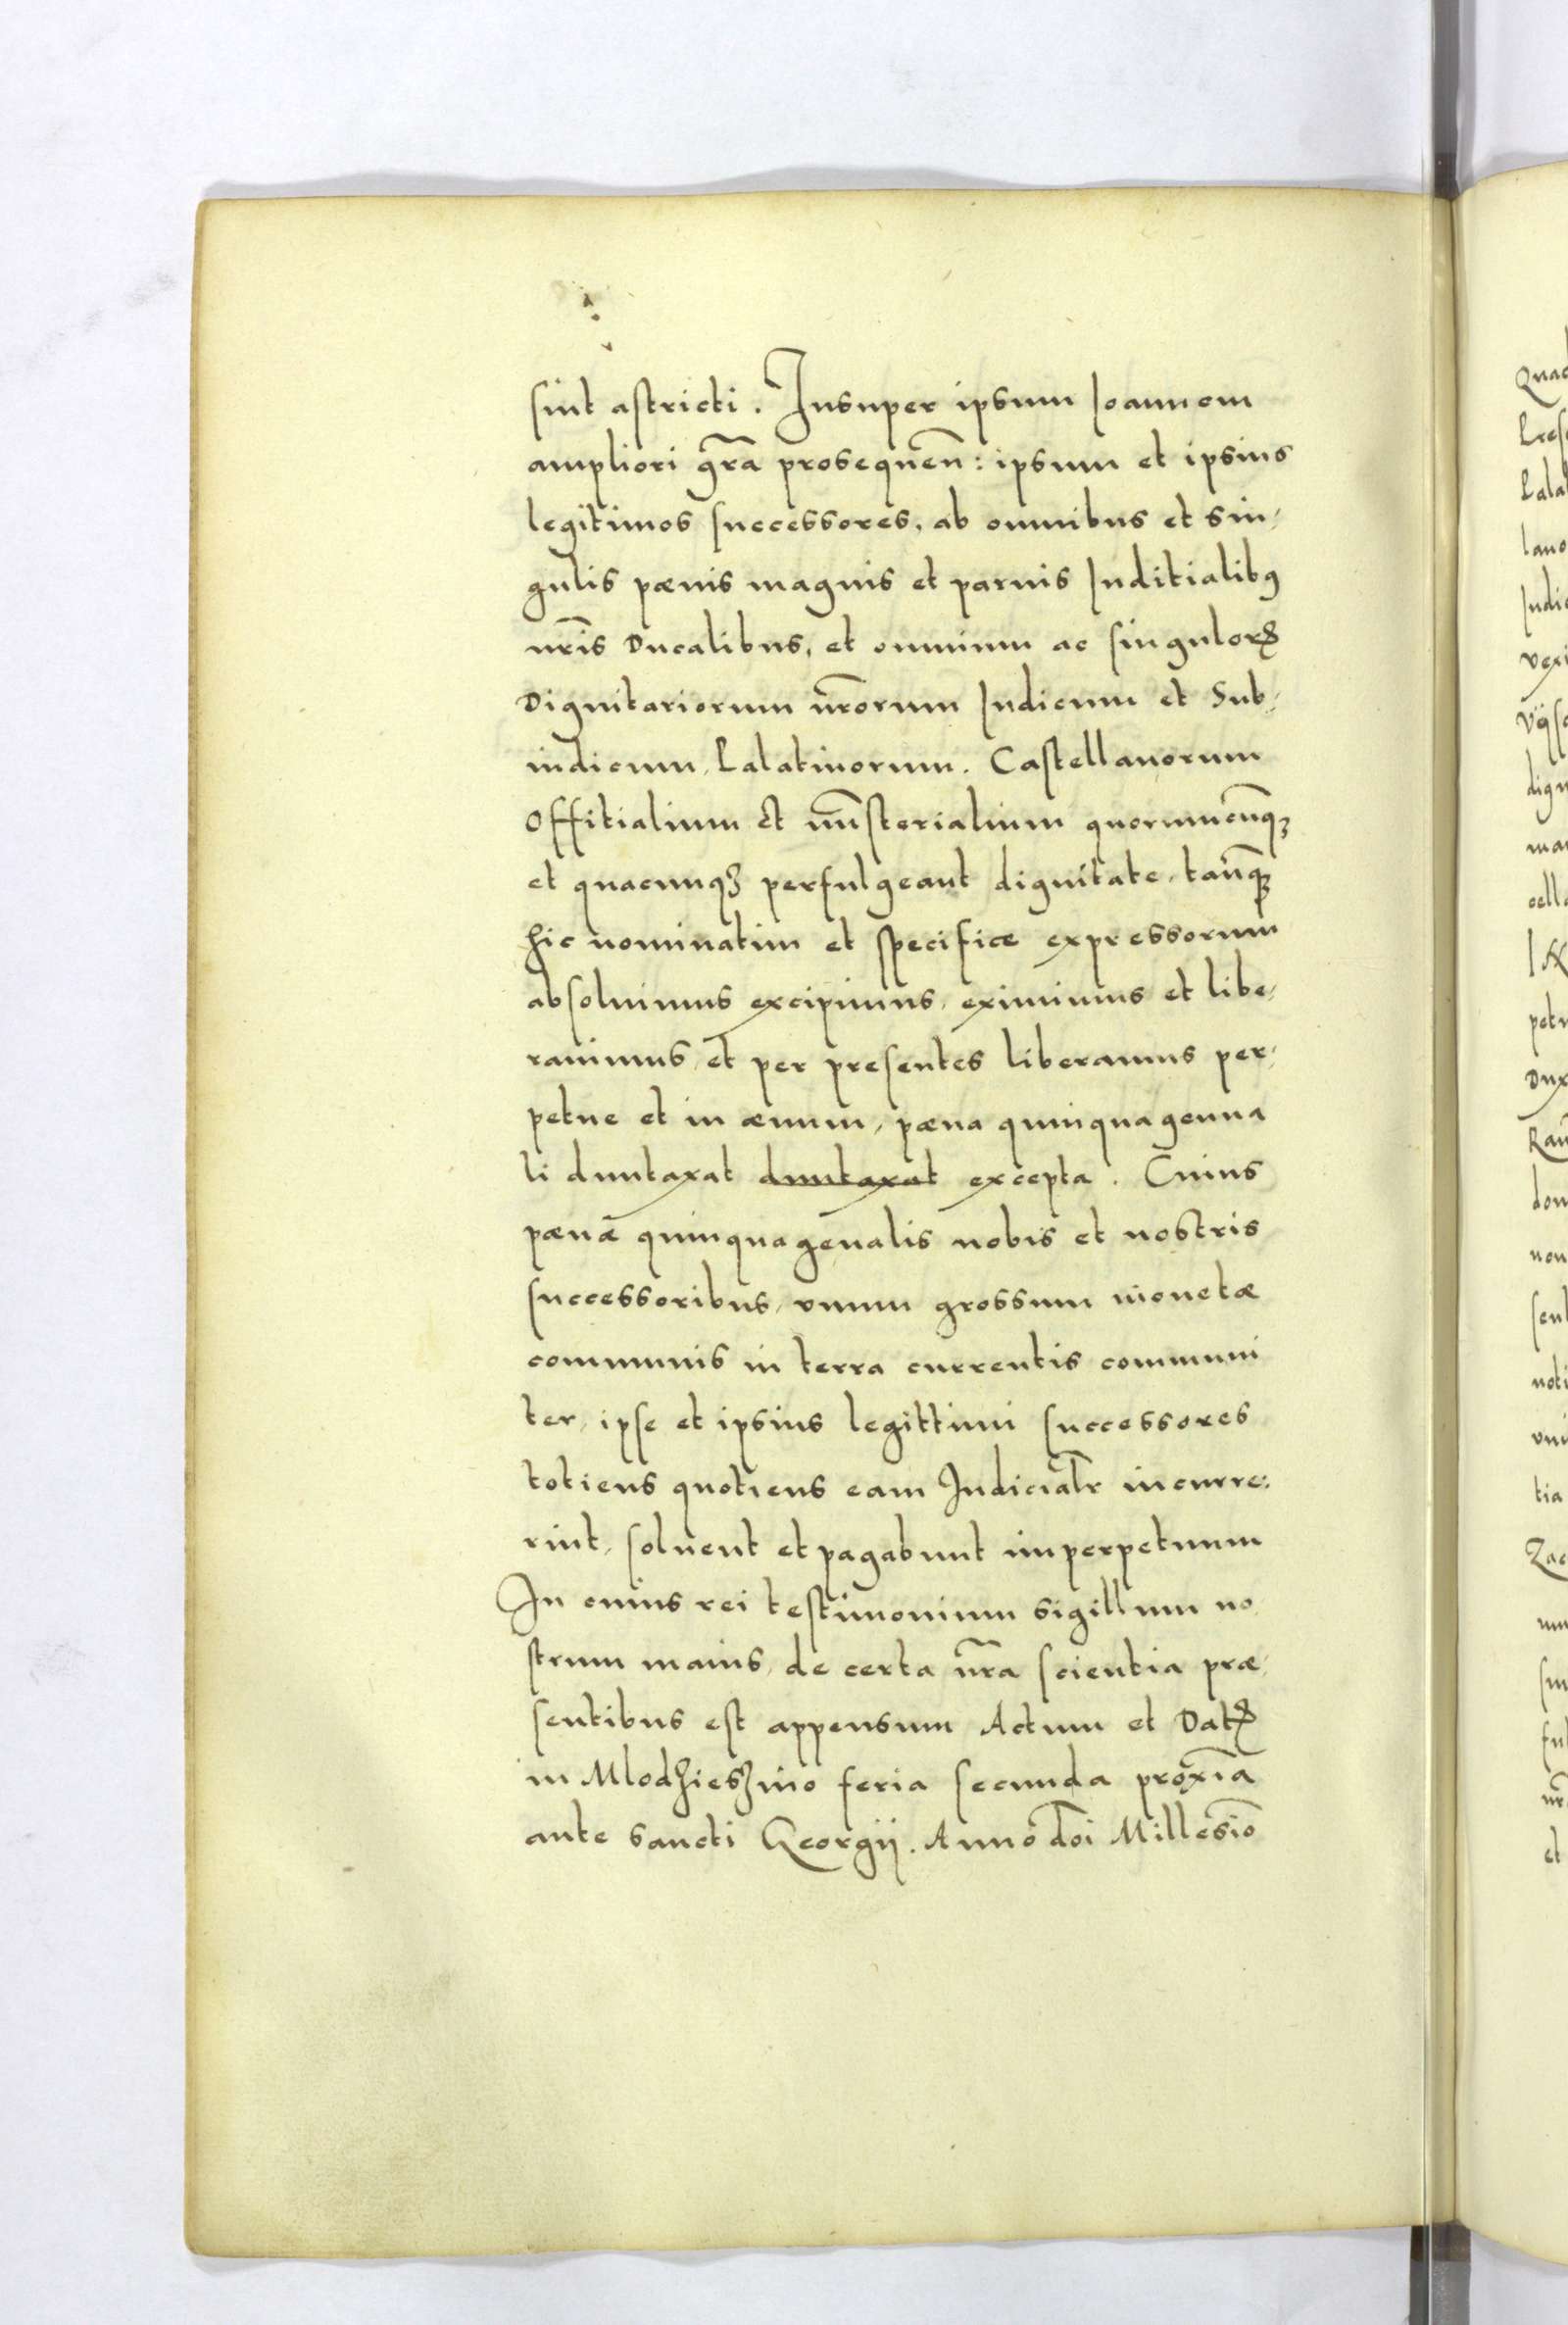 sint astricti. Insuper ipsum Ioannem
ampliori gr̃a prosequeñ: ipsum et ipsius
legitimos successores, ab omnibus et sin-
gulis pænis magnis et paruis Iuditialibꝰ
nr̃is Ducalibus, et omnium ac singulorꝝ
Dignitariorum nr̃orum Iudicum et Sub-
iudicum, Palatinorum. Castellanorum
Offitialium et mĩsterialium quorumcũqꝫ
et quacunqꝫ perfulgeant dignitate, tanq̃ꝫ
hic nominatim et specificæ expressorum
absoluimus excipimus, eximimus et libe-
rauimus, et per presentes liberamus per-
petue et in æuum, pæna quinquagenna
li duntaxat duntaxat excepta. Cuius
pænæ quinquagenalis nobis et nostris
successoribus, vnum grossum monetæ
communis in terra currentis communi
ter, ipse et ipsius legittimi successores
totiens quotiens eam Iudicialr̃ incurre-
rint, soluent et pagabunt imperpetuum
In cuius rei testimonium sigillum no-
strum maius, de certa nr̃a scientia præ-
sentibus est appensum Actum et Datꝝ
in Mlodzieszino feria secunda proxĩa
ante sancti Georgij. Anno dõi Millesĩo